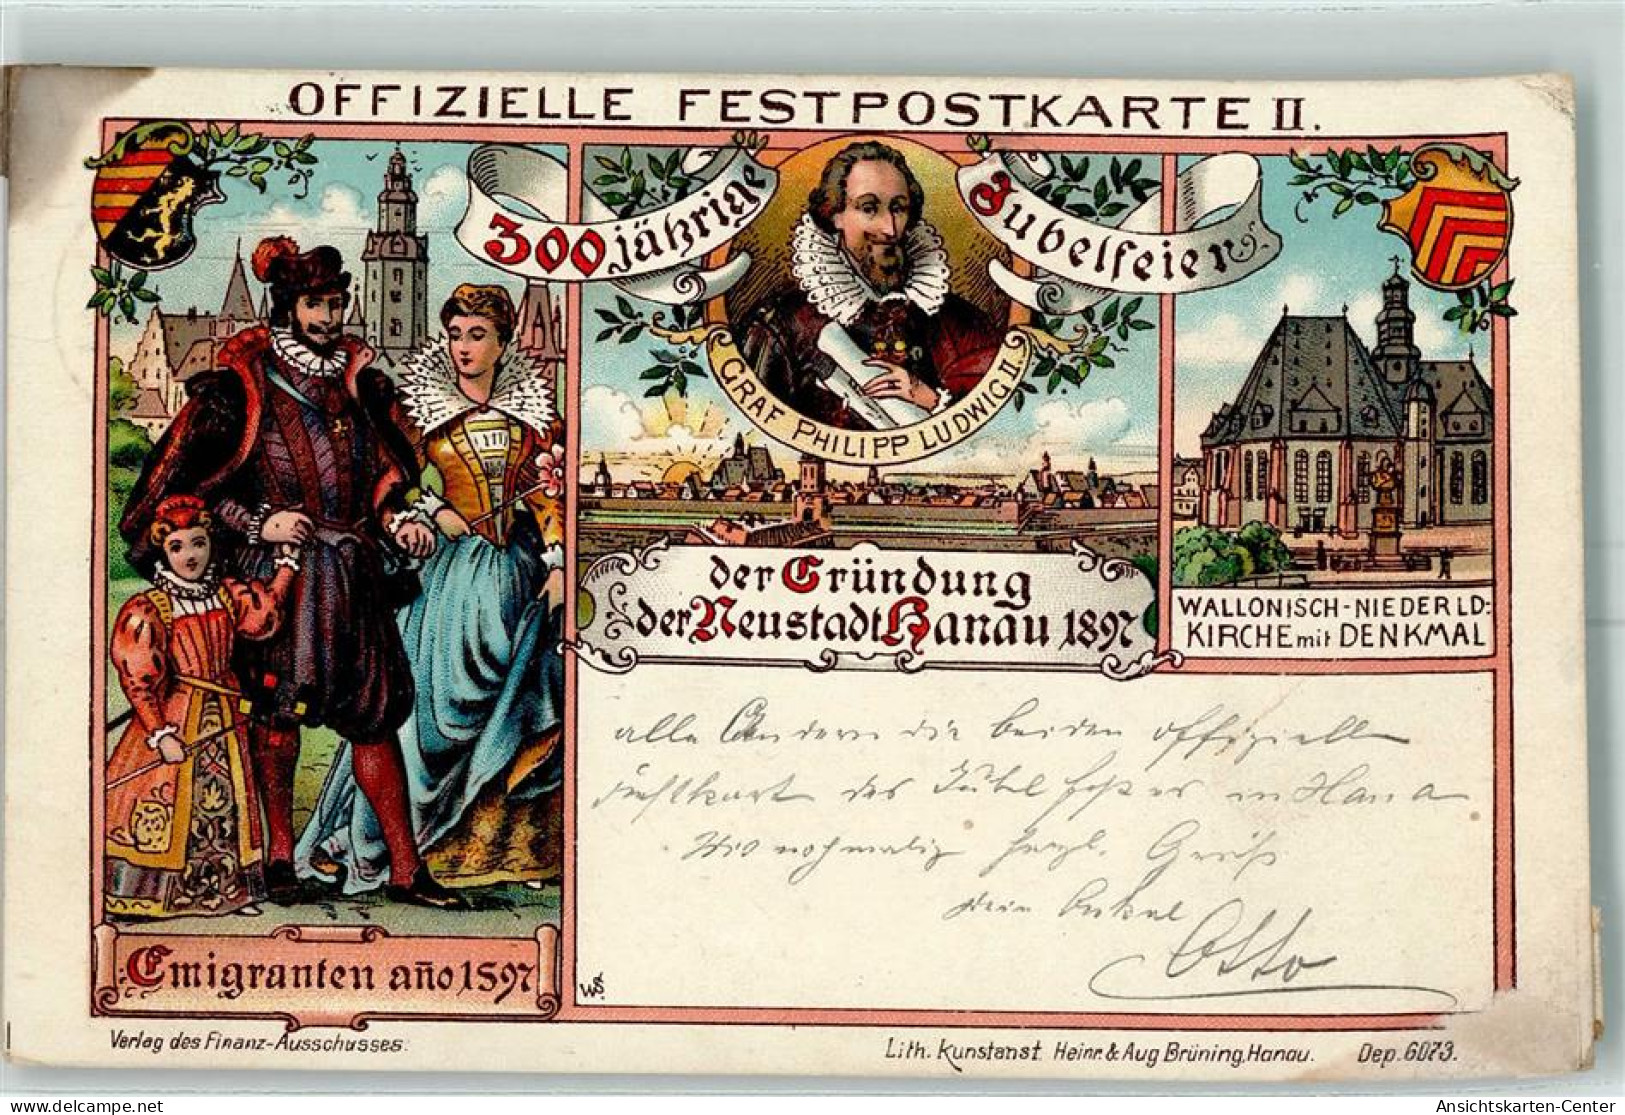 OFFIZIELLE FESTPOSTKARTE II.
300 jährige Jubelfeier
GRAF PHILIPP LUDWIG II.
der Gründung
der Neustadt Hanau 1897
WALLONISCH-NIEDERLD:
KIRCHE mit DENKMAL
alle Andern die beiden offiziellen
des Jubel in Hana
nochmalig herzl. Gruß
Dein Onkel
Otto
Emigranten año 1597
WS.
Verlag des Finanz-Ausschusses.
Lith. Kunstanst. Heinr. & Aug Brüning, Hanau. Dep. 6073.
delcampe.net
Ansichtskarten-Center